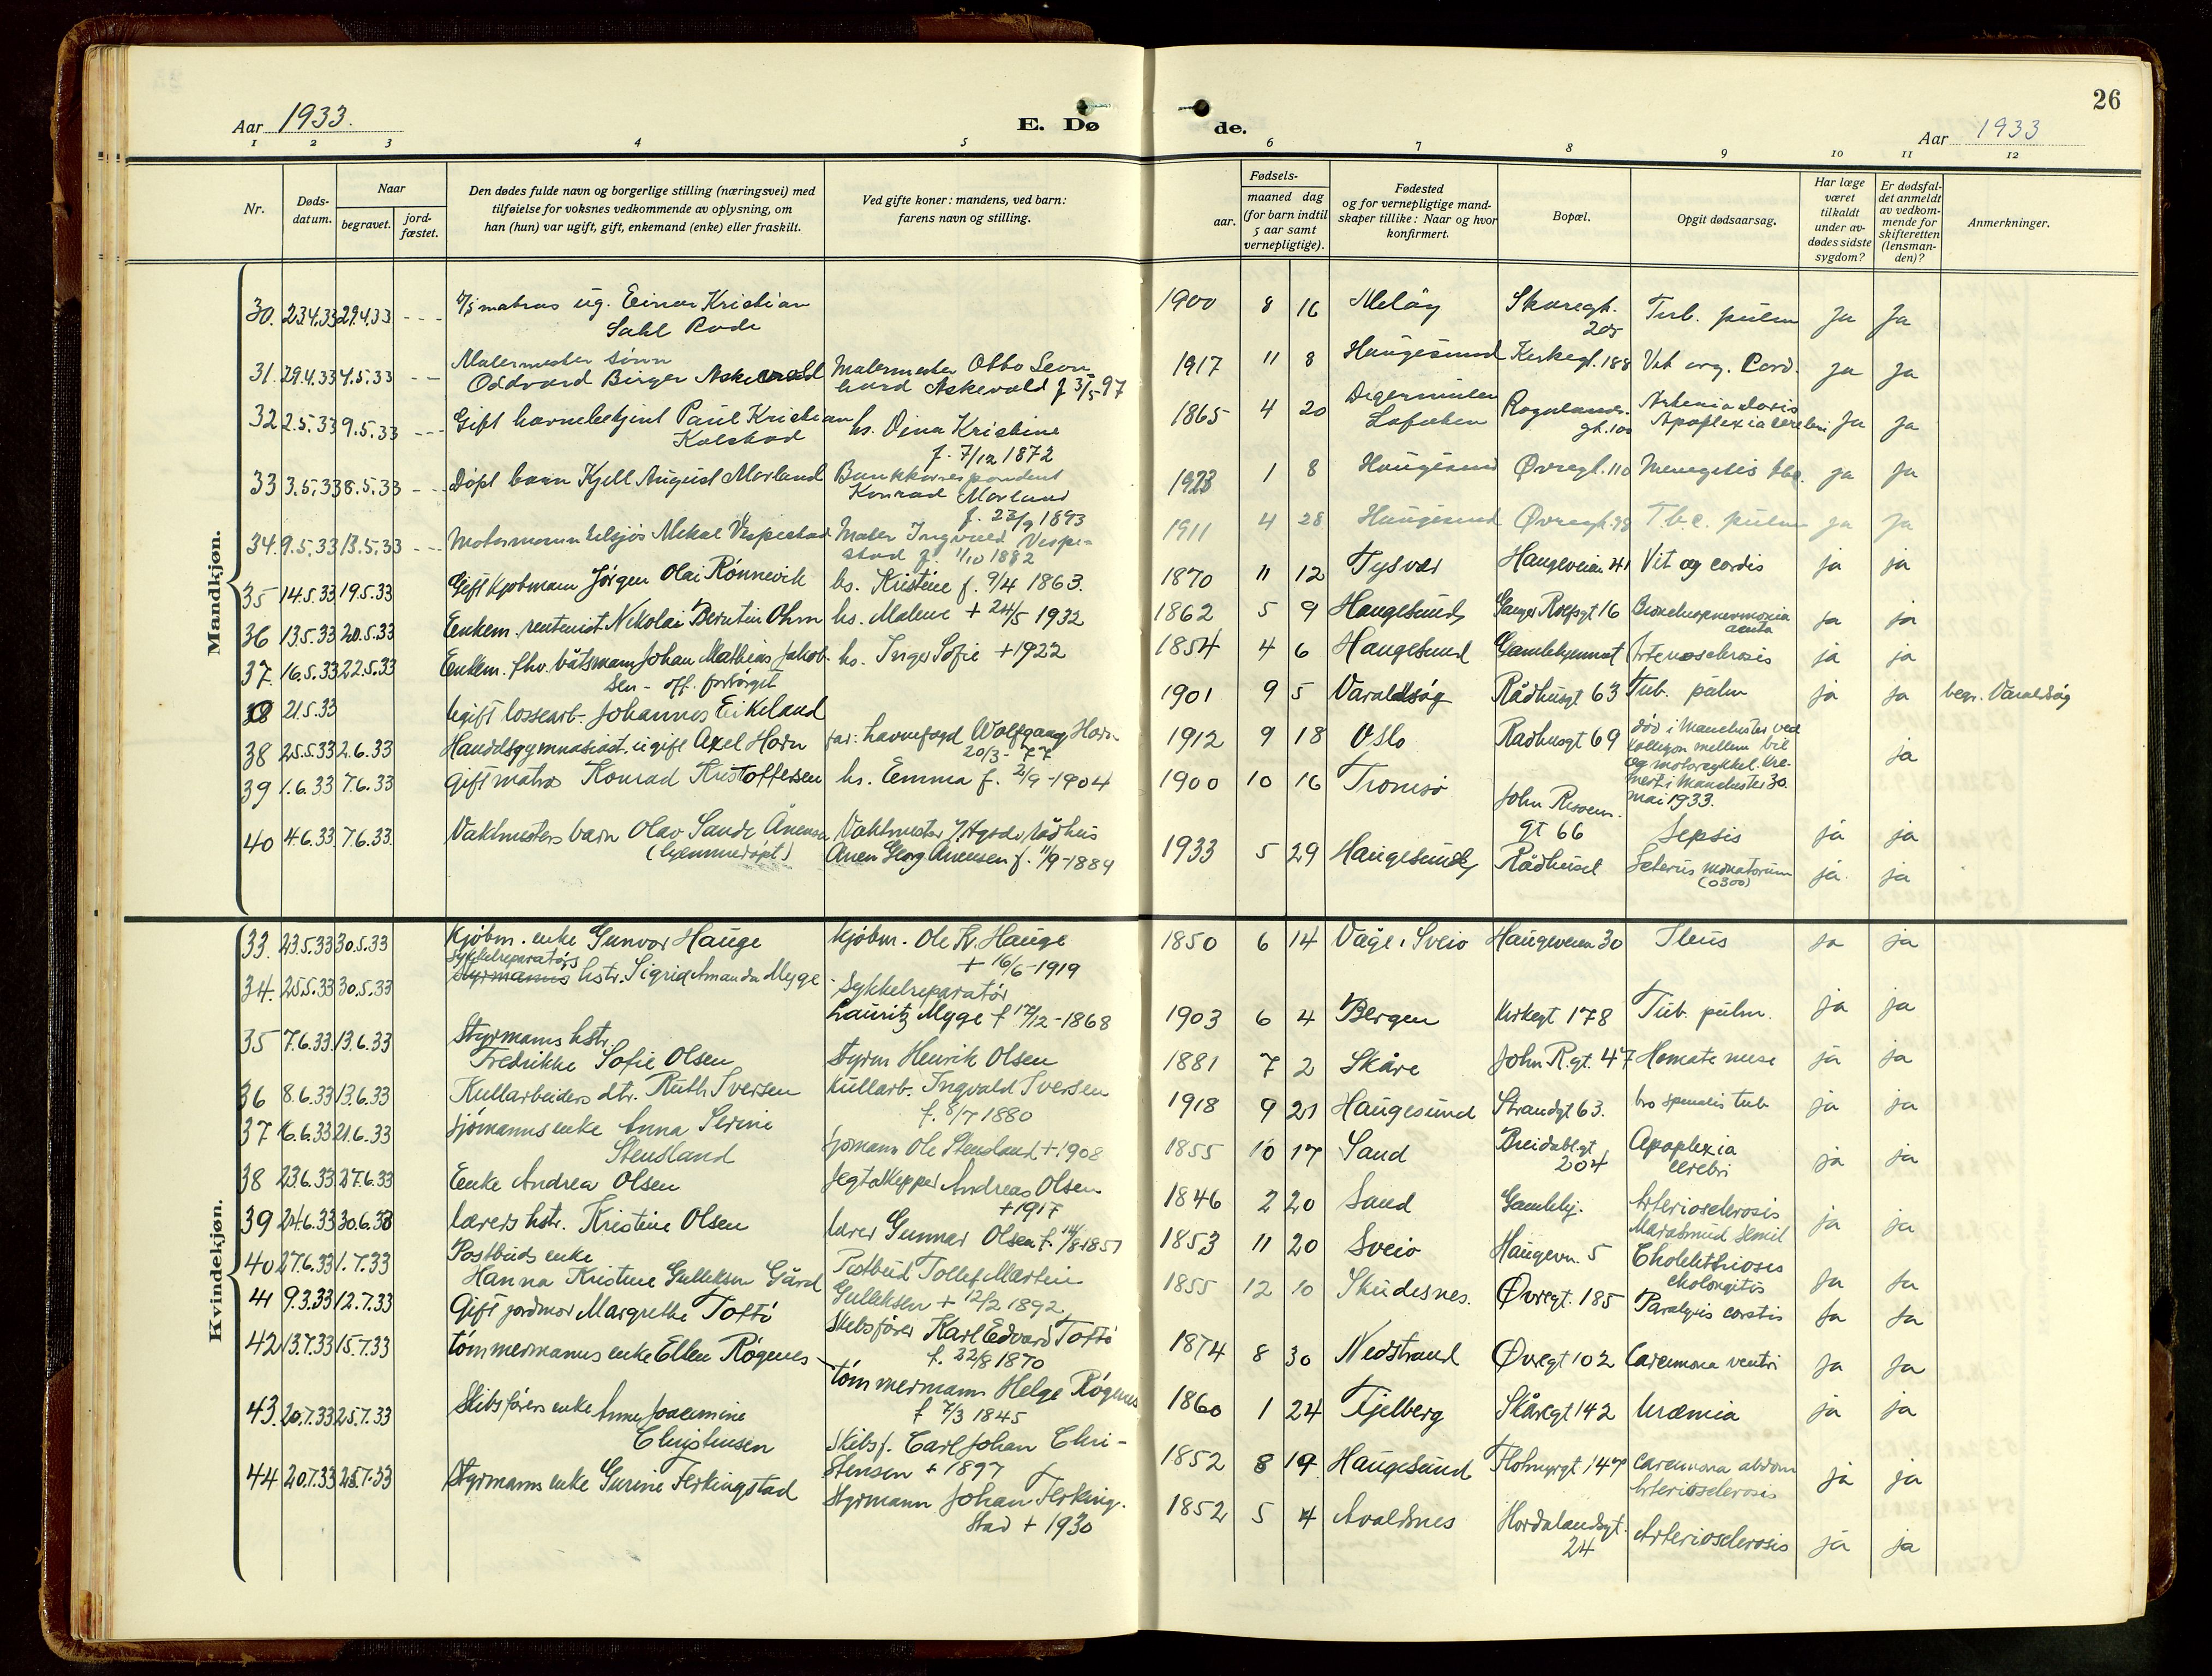 26
Aar 1933.
E. Dø
de.
Aar 1933
1 2 3 4 5 6 7 8 9 10 11 12
Nr.
Døds-
datum.
Naar
begravet.
jord-
fæstet.
Den dødes fulde navn og borgerlige stilling (næringsvei) med
tilføielse for voksnes vedkommende av oplysning, om
han (hun) var ugift, gift, enkemand (enke) eller fraskilt.
Ved gifte koner: mandens, ved barn:
farens navn og stilling.
Fødsels-
aar.
maaned dag
(for barn indtil
5 aar samt
vernepligtige).
Fødested
og for vernepligtige mand-
skaper tillike: Naar og hvor
konfirmert.
Bopæl.
Opgit dødsaarsag.
Har læge
været
tilkaldt
under av-
dødes sidste
sygdom?
Er dødsfal-
det anmeldt
av vedkom-
mende for
skifteretten
(lensman-
den)?
Anmerkninger.
Mandkjøn.
30. 23.4.33 29.4.33 - - - matros ug. Einar Kristian
Dahl Rode
1900 8 16 Meløy Skåregt.
205
Tub. pulm ja ja
31. 29.4.33 4.5.33 - - Malermester sønn
Oddvard Birger Askevold
Malermester Otto Leon
hard Askevold f 3/5-97
1917 11 8 Haugesund Kirkegt. 188 Vit org. Cord. ja ja
32 2.5.33 9.5.33 - - - Gift havnebetjent Paul Kristian
Kolstad
hs. Oina Kristine
f. 7/12 1872
1865 4 20 Digermulen
Lofoten
Rogalands-
gt. 100
Apoplexia cerebri ja ja
33 3.5.33 8.5.33 - - - Døpt barn Kjell August Morland
Bankkorrespondent
Konrad Morland
f. 23/9 1893
1923 1 8 Haugesund Øvregt. 110 Menegitis tbc. ja ja
34. 9.5.33 13.5.33 - - - Motormann tilsjøs Mikal Vespestad
Maler Ingvald Vespe-
stad f 1/10 1882
1911 4 28 Haugesund Øvregt. 98 T.b.c. pulm ja ja
35 14.5.33 19.5.33 Gift kjøbmann Jørgen Olai Rönnevik hs. Kristine f. 9/4 1863.
1870 11 12 Tysvær Haugeveien 41 Vit og cordis ja ja
36 13.5.33 20.5.33 Enkem. rentenist Nikolai Berntin Ohm hs. Malene + 24/5 1932
1862 5 9 Haugesund Ganger Rolfsgt 16 Bronchopneumonia
acuta
ja ja
37. 16.5.33 22.5.33 Enkem. fhv. båtsmann Johan Mathias Jakob-
sen - off. forsörget
hs. Inger Sofie + 1922
1854 4 6 Haugesund Gamlehjemmet Arteriosclerosis ja ja
21.5.33 Ugift lossearb. Johannes Eikeland
1901 9 5 Varaldsöy Rådhusgt 63 Tub. pulm ja ja begr. Varaldsöy
38 25.5.33 2.6.33 Handelsgymnasiast. ugift Axel Horn
far: havnefogd Wolfgang Horn
20/3-77
1912 9 18 Oslo Rådhusgt 69 död i Manchester ved
kollisjon mellem bil
og motorsykkel. Kre-
mert i Manchester 30.
mai 1933.
ja
39 1.6.33 7.6.33 Gift matros Konrad Kristoffersen hs. Emma f. 2/9-1904
1900 10 16 Tromsö John Rossem.
gt 66
Sepsis ja ja
40 4.6.33 7.6.33. Vaktmesters barn Olav Sande Ånensen
(hjemmedöpt)
Vaktmester v/Hgsds rådhus
Ånen Georg Ånensen f. 11/9-1889
1933 5 29 Haugesund Rådhuset
ja ja
Kvindekjøn.
33. 23.5.33 30.5.33 Kjöbm. enke Gunvor Hauge
Kjöbm. Ole Kr. Hauge
+ 16/6-1919
1850 6 14 Våge i Sveio Haugeveien 30 Ileus ja ja
34. 25.5.33 30.5.33 sykkelreparatörs
styrmanns hstr. Sigrid Amanda Mygge
Sykkelreparatör
Lauritz Mygge f 17/12-1868
1903 6 4 Bergen Kirkegt 178 Tub. pulm. ja ja
35 7.6.33 13.6.33 Styrmanns hstr.
Fredrikke Sofie Olsen
Styrm Henrik Olsen
1881 7 2 Skåre John R.gt. 47 ja ja
36 8.6.33 13.6.33 Kullarbeiders dtr. Ruth Iversen
Kullarb. Ingvald Iversen
f. 8/7 1880
1918 9 21 Haugesund Strandgt 63. ja ja
37 16.6.33 21.6.33 Sjömanns enke Anna Serine
Stensland
Sjömann Ole Stensland + 1908
1855 10 17 Sand Breidablgt
204
Apoplexia
cerebri
ja ja
38 23.6.33 27.6.33 Enke Andrea Olsen
Jegtskipper Andreas Olsen
+ 1917
1846 2 20 Sand Gamlehj. Arteriosclerosis
ja ja
39 24.6.33 30.6.33 Lærers hstr. Kristine Olsen
lærer Gunnar Olsen f. 14/8-1857
1853 11 20 Sveio Haugevn. 5
40 27.6.33 1.7.33 Postbuds enke
Hanna Kristine Gulleksen Gård
Postbud Tollef Martin
Gulleksen + 12/2 1892
1855 12 10 Skudesnes. Øvregt. 185 ja ja
41 9.3.33 12.7.33 Gift jordmor Margrethe Toftö
Skibsförer Karl Edvard Toftö
f. 22/8 1870
1874 8 30 Nedstrand Øvregt 102 ja ja
42 13.7.33 15.7.33 tömmermanns enke Ellen Rögenes
tömmermann Helge Rögenes
f 7/3 1845
1860 1 24 Fjelberg Skåregt 142 Uræmia ja ja
43. 20.7.33 25.7.33 Skibsförers enke Anne Joacimine
Christensen
Skibsf. Carl Johan Chri-
stensen + 1897
1852 8 19 Haugesund Flotmyrgt 147 Arteriosclerosis ja ja
44 20.7.33 25.7.33 Styrmanns enke Gurine Ferkingstad
Styrmann Johan Ferking-
stad + 1930
1852 5 4 Avaldsnes Hordalandsgt.
24
Arteriosclerosis ja ja